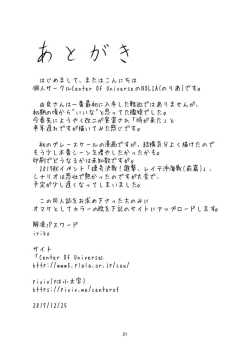 あとがき
はじめまして、またはこんにちは
個人サークルCenter Of UniverseのNOLIA(のりあ)です。
由良さんは一番最初に入手した艦娘ではありませんが、
初期の頃から"いいな"と思ってた艦娘でした。
今春先にようやく改二が実装され「時が来た」と
半年遅れですが描いてみた感じです。
初のグレースケールの漫画ですが、結構自分よく描けたので
もう少し本番シーンを増やしたかったかも
印刷でどうなるかは未知数ですが。
2017秋イベント「捷号決戦!邀撃、レイテ沖海戦(前篇)」、
シナリオは悲壮で熱かったのですが大変で、
予定が少し遅くなってしまいました。
この同人誌をお求め下さった方のみに
オマケとしてカラーの絵を下記のサイトにアップロードします。
解凍パスワード
サイト
「Center Of Universe」
2017/12/25
21